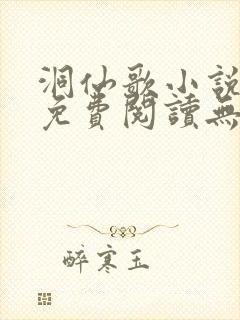 洞仙歌小說
免費閱讀無
醉寒玉